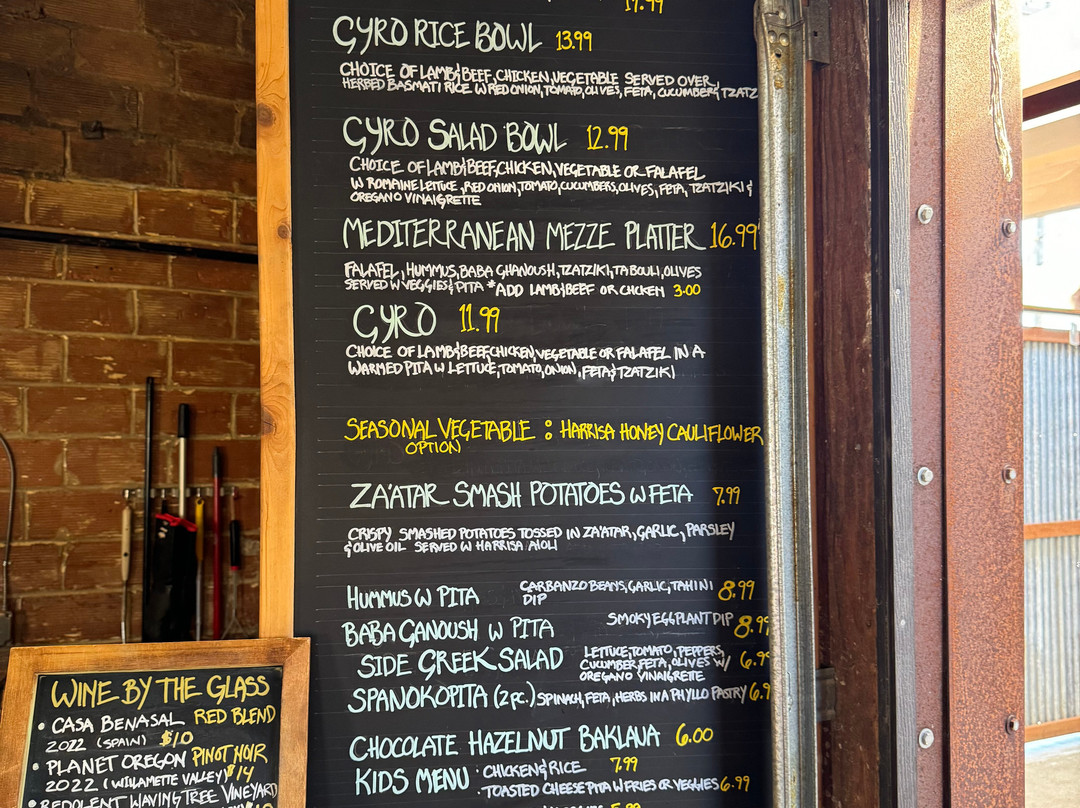 17.99
GYRO RICE BOWL 13.99
CHOICE OF LAMB&BEEF, CHICKEN, VEGETABLE SERVED OVER
HERBED BASMATI RICE W RED ONION, TOMATO, OLIVES, FETA, CUCUMBER & TZATZ
GYRO SALAD BOWL 12.99
CHOICE OF LAMB&BEEF, CHICKEN, VEGETABLE OR FALAFEL
W ROMAINE LETTUCE, RED ONION, TOMATO, CUCUMBERS, OLIVES, FETA, TZATZIKI &
OREGANO VINAIGRETTE
MEDITERRANEAN MEZZE PLATTER 16.99
FALAFEL, HUMMUS, BABA GHANOUSH, TZATZIKI, TABOULI, OLIVES
SERVED W VEGGIES & PITA *ADD LAMB&BEEF OR CHCKEN 3.00
GYRO 11.99
CHOICE OF LAMB&BEEF, CHICKEN, VEGETABLE OR FALAFEL IN A
WARMED PITA W LETTUCE, TOMATO, ONION, FETA & TZATZIKI
SEASONAL VEGETABLE : HARRISA HONEY CAULIFLOWER
OPTION
ZA'ATAR SMASH POTATOES W FETA 7.99
CRISPY SMASHED POTATOES TOSSED IN ZA'ATAR, GARLIC, PARSLEY
& OLIVE OIL SERVED W HARRISA AIOLI
HUMMUS W PITA CARBANZO BEANS, GARLIC, TAHINI 8.99
DIP
BABA GANOUSH W PITA SMOKY EGGPLANT DIP 8.99
SIDE GREEK SALAD LETTUCE, TOMATO, PEPPERS,
CUCUMBER, FETA, OLIVES W/ 6.9
OREGANO VINAIGRETTE
SPANOKOPITA (2 PC.) SPINACH, FETA, HERBS IN A PHYLLO PASTRY 6.9
CHOCOLATE HAZELNUT BAKLAVA 6.00
KIDS MENU • CHICKEN & RICE 7.99
• TOASTED CHEESE PITA W FRIES OR VEGGIES 6.99
WINE BY THE GLASS
• CASA BENASAL RED BLEND
2022 (SPAIN) $10
• PLANET OREGON PINOT NOIR
2022 (WILLAMETTE VALLEY) $14
• REDOLENT WAVING TREE VINEYARD